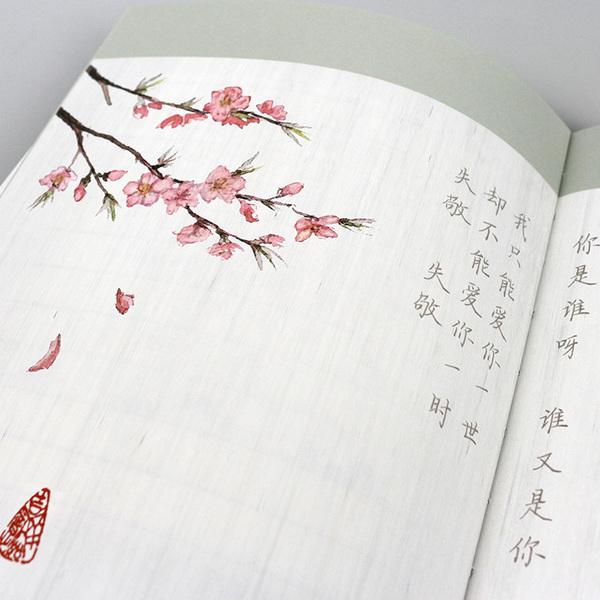 你是谁呀 谁又是你
我只能爱你一世
却不能爱你一时
失敬 失敬